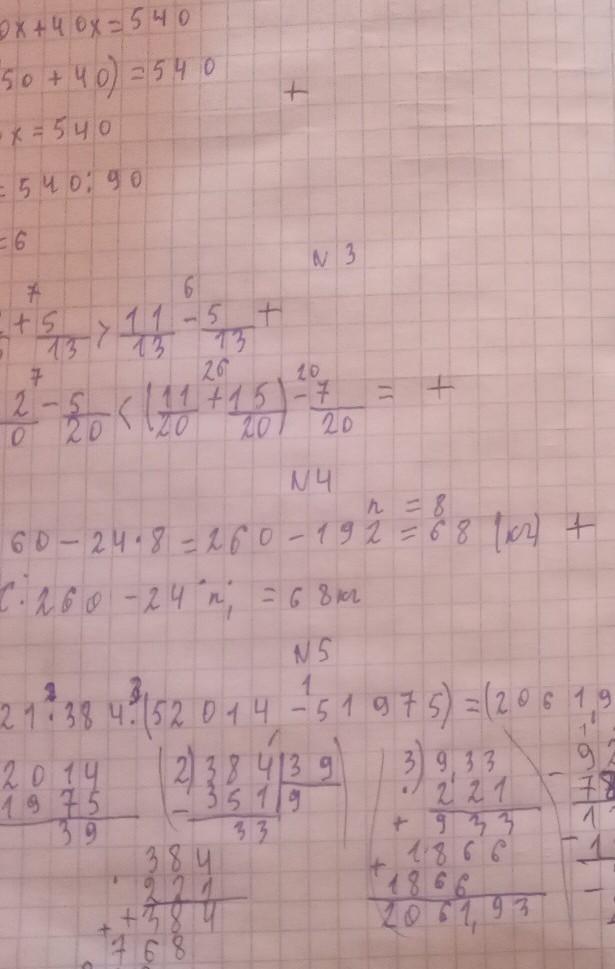 0x+40x=540
50+40)=540
+
x=540
=540:90
=6
N 3
7 6
+5/13 > 11/13 - 5/13 +
7 26 20
2/0 - 5/20 < (11/20 + 15/20) - 7/20 = +
N4
n = 8
60-24·8=260-192=68 (кг) +
:260-24·n; = 68кг
N5
21·384:(52014-51975)=(20619
2014
1975
39
2) 384 39
- 351 9
33
3) 9,33
· 221
+ 933
+ 1866
1866
2061,93
- 92
78
1
- 1
384
· 221
+ 384
+ 768